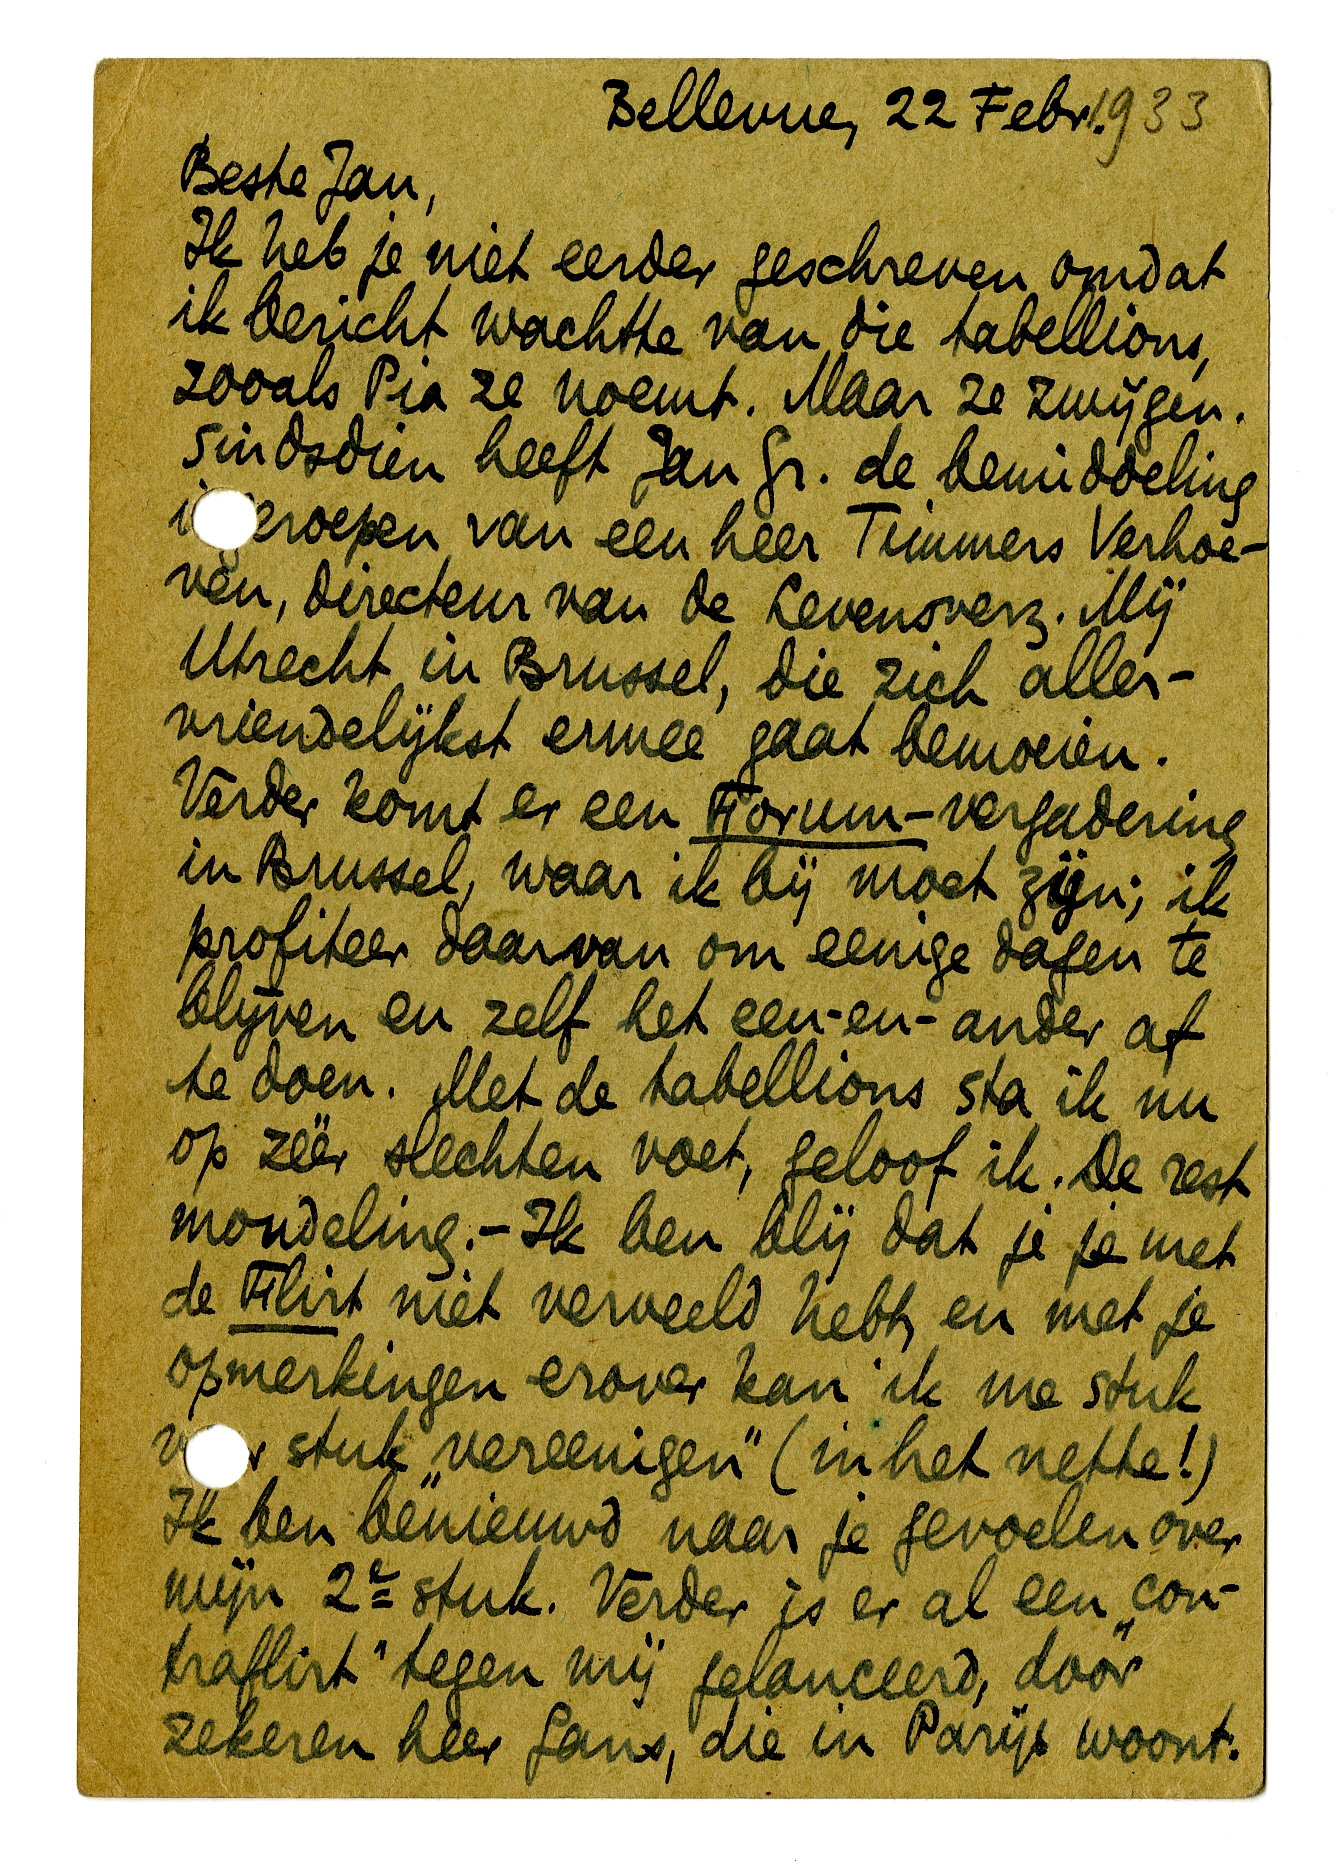 Bellevue, 22 Febr. 1933
Beste Jan,
Ik heb je niet eerder geschreven omdat
ik bericht wachtte van die tabellions,
zooals Pia ze noemt. Maar ze zwijgen.
Sindsdien heeft Jan Gr. de bemiddeling
i geroepen van een heer Timmers Verhoe-
ven, directeur van de Levensverz. Mij
Utrecht in Brussel, die zich aller-
vriendelijkst ermee gaat bemoeien.
Verder komt er een Forum-vergadering
in Brussel, waar ik bij moet zijn; ik
profiteer daarvan om eenige dagen te
blijven en zelf het een-en-ander af
te doen. Met de tabellions sta ik nu
op zéér slechten voet, geloof ik. De rest
mondeling. – Ik ben blij dat je je met
de Flirt niet verveeld hebt, en met je
opmerkingen erover kan ik me stuk
v r stuk „vereenigen" (in het nette!)
Ik ben benieuwd naar je gevoelen over
mijn 2e stuk. Verder is er al een „con-
traflirt" tegen mij gelanceerd, door
zekeren heer Gans, die in Parijs woont.